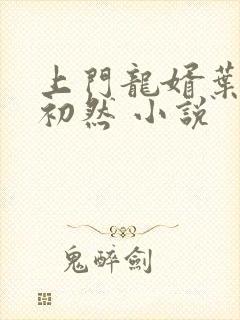 上門龍婿葉
初然 小說
鬼醉劍